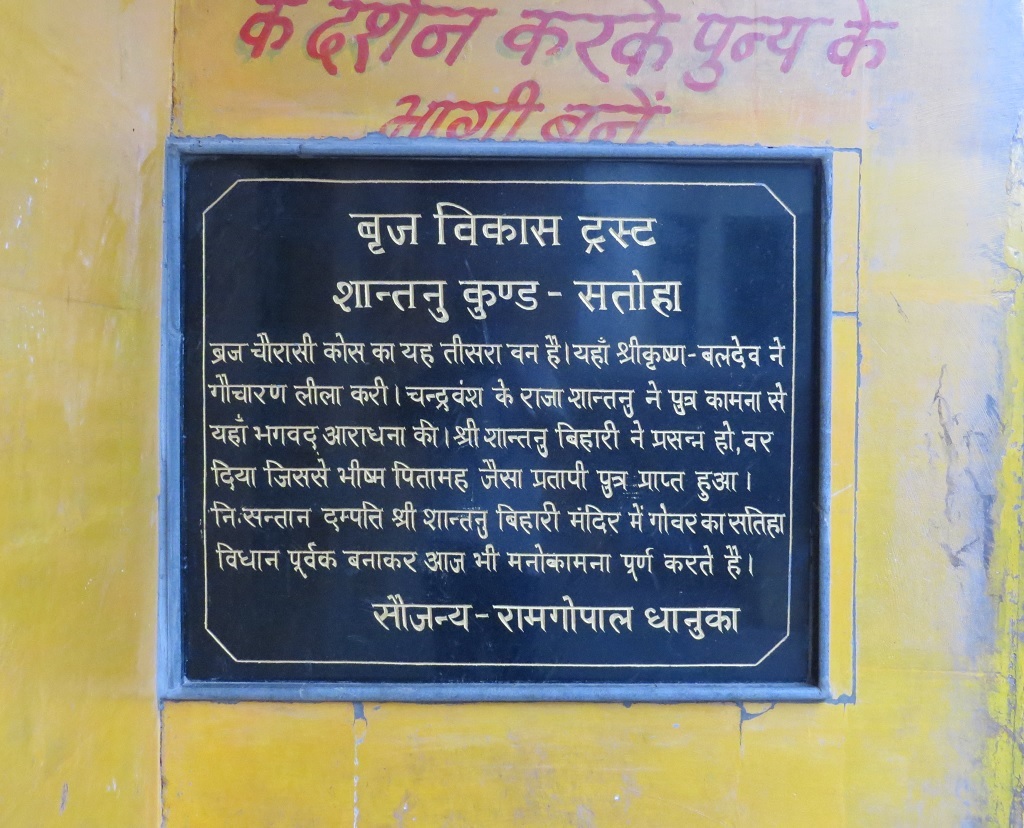 के दर्शन करके पुन्य के
भागी बनें
बृज विकास ट्रस्ट
शान्तनु कुण्ड - सतोहा
ब्रज चौरासी कोस का यह तीसरा वन है। यहाँ श्रीकृष्ण-बलदेव ने
गौचारण लीला करी। चन्द्रवंश के राजा शान्तनु ने पुत्र कामना से
यहाँ भगवद् आराधना की। श्री शान्तनु बिहारी ने प्रसन्न हो, वर
दिया जिससे भीष्म पितामह जैसा प्रतापी पुत्र प्राप्त हुआ।
निःसन्तान दम्पति श्री शान्तनु बिहारी मंदिर में गोवर का सतिहा
विधान पूर्वक बनाकर आज भी मनोकामना पूर्ण करते है।
सौजन्य - रामगोपाल धानुका